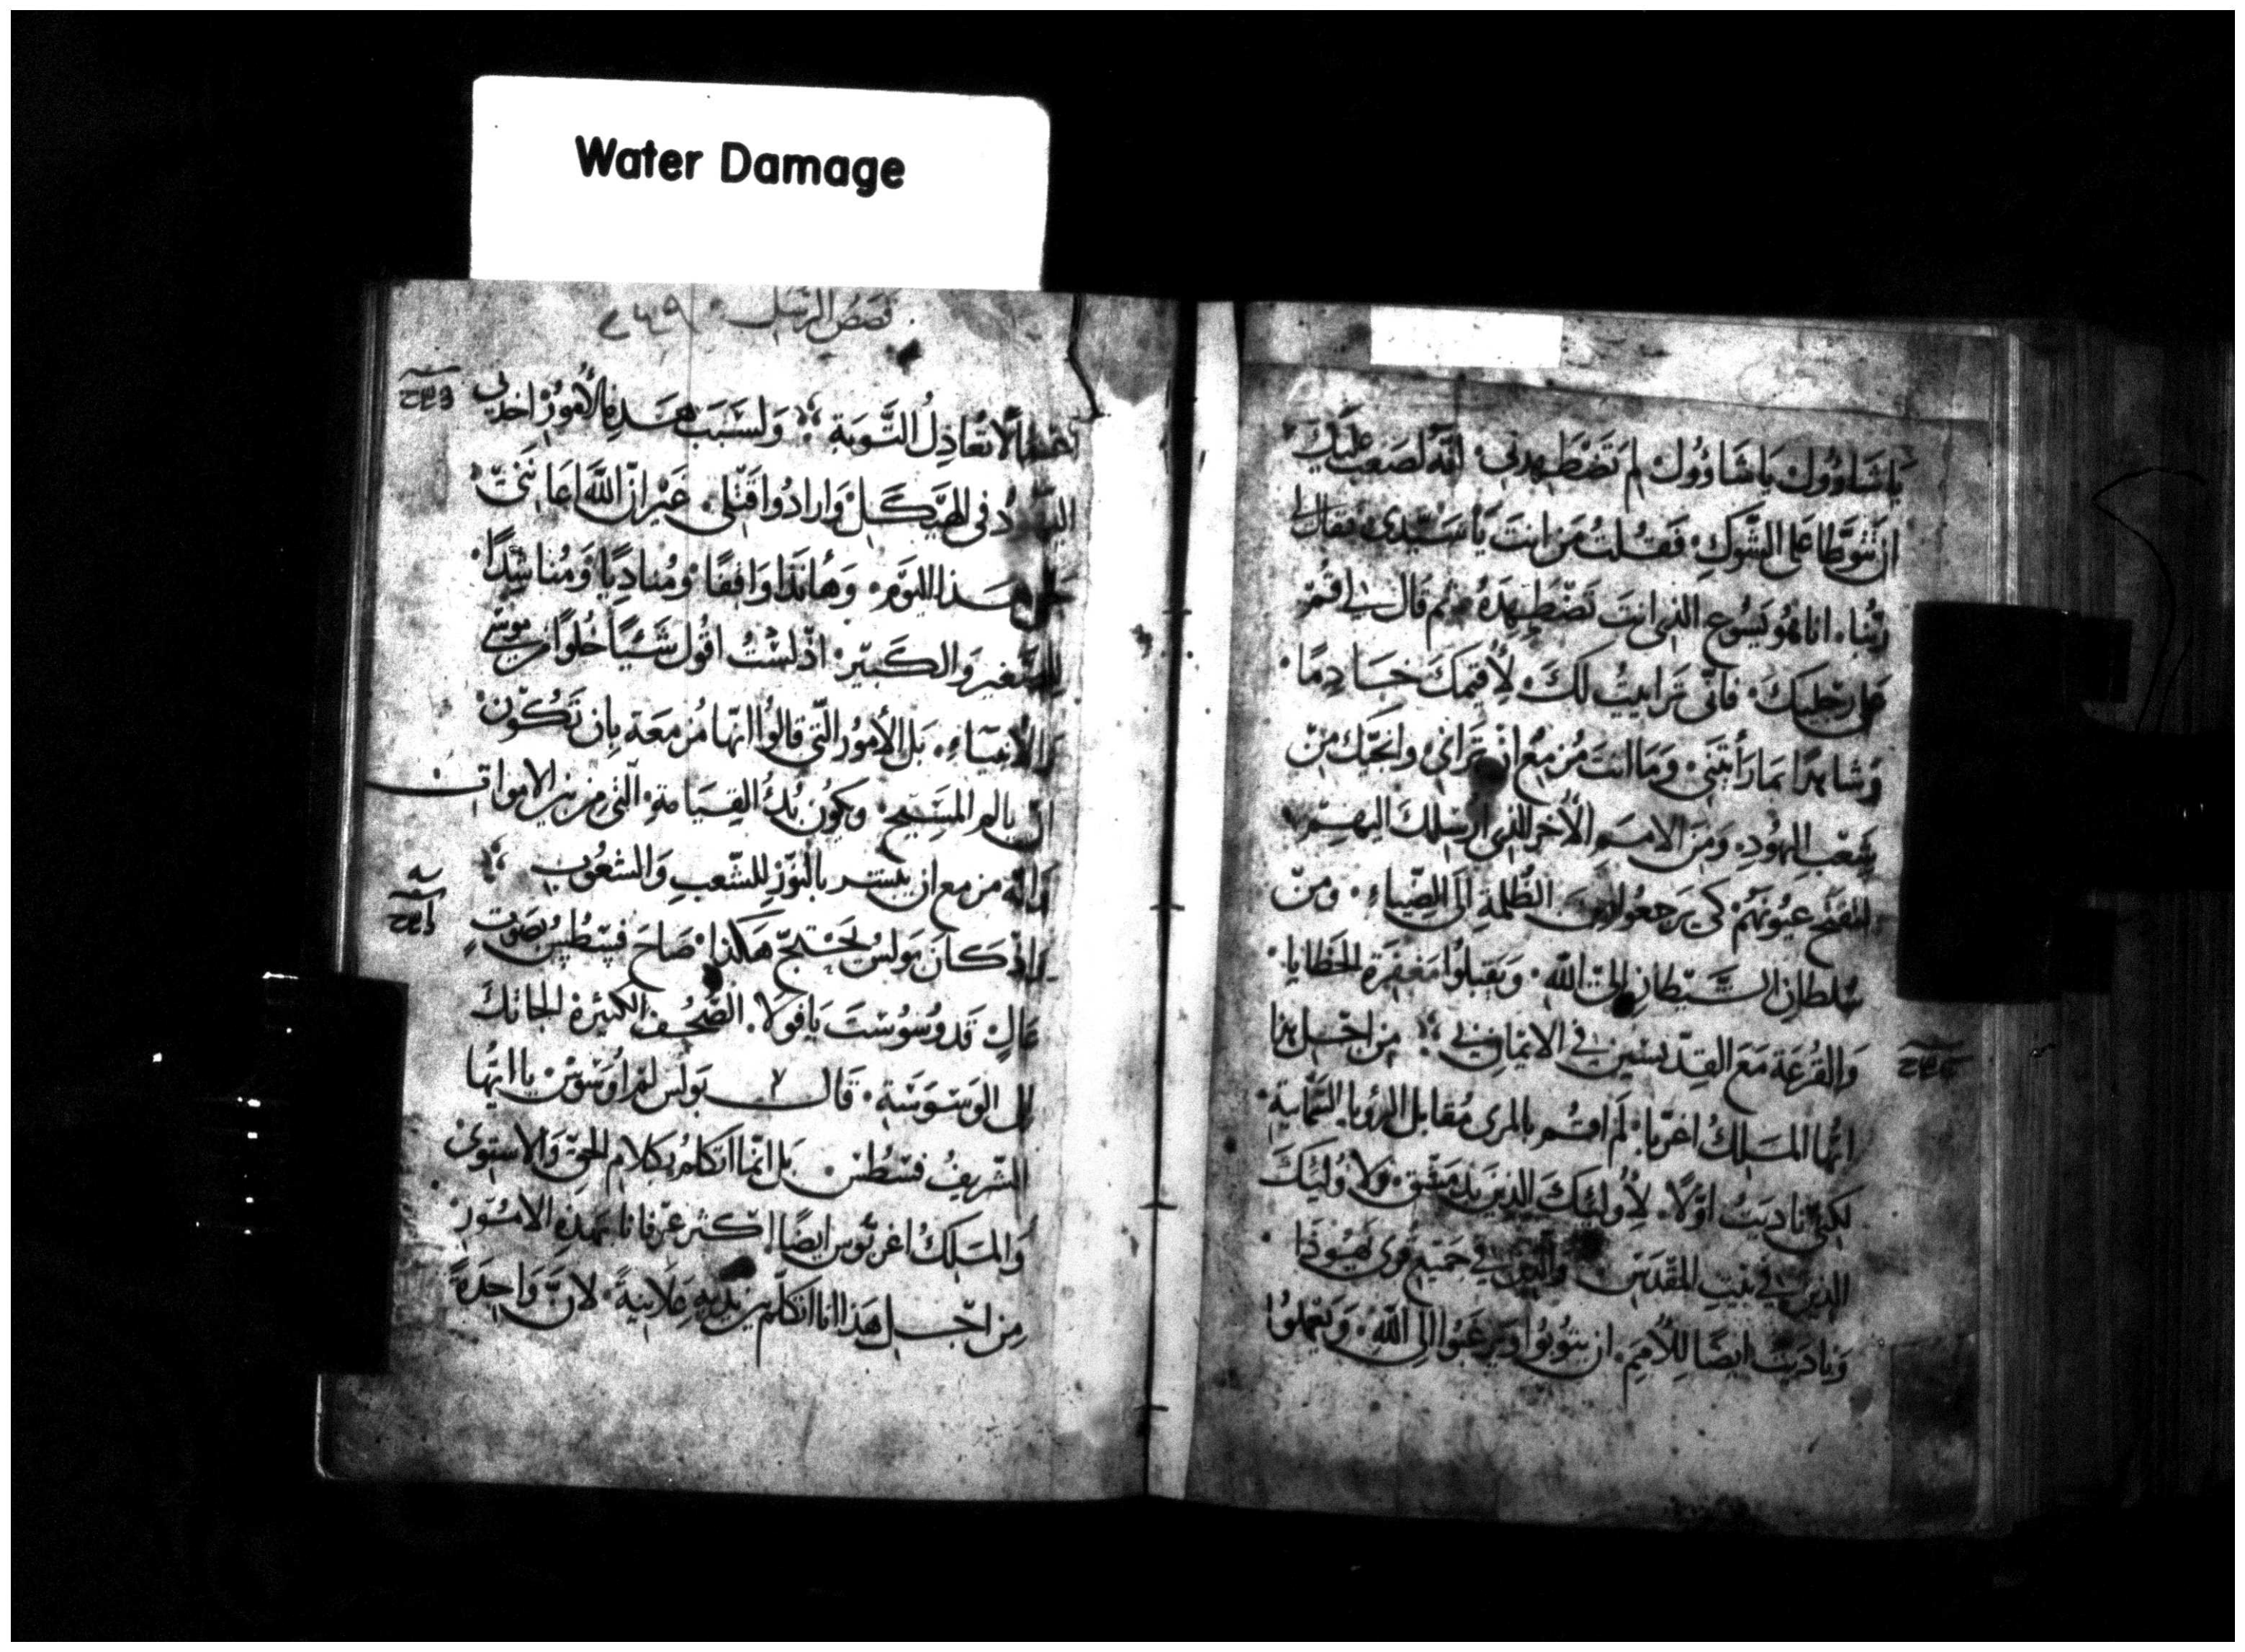 Water Damage
يَا شَاوُول يَا شَاوُول لِمَ تَضْطَهِدني. انّه لصَعبٌ عَلَيكَ
ان تتوطا على الشَّوكِ. فَقُلتُ مَن انتَ يَا سَيّدى. فقال لى
ربّنا. انا هُو يَسُوع الذى انتَ تَضْطَهِدهُ. ثم قَال لى اقُم
على رجليكَ. فانّى تَرا ايتُ لكَ. لأُقيمَكَ خَادِمًا.
وشاهِدًا بمَا رَأيتَنى. وَمَا انتَ مُزمِعٌ ان تَرانى. وانجّيك مِن
شَعبِ اليهُودِ. وَمِنَ الامَمِ الأخر الذى ارسلك اليهِم.
لتفتح عيُونَهُم كى يرجعُوا مِنَ الظُلمةِ الَى الضّياءِ. ومِن
سُلطانِ الشَّيطانِ الىَ اللّه. وَيَقبلُوا مَغفِرَة الخَطايا.
وَالقُرعَة مَعَ القدّيسين فى الايمانِ بى. مِن اجل هذا
ايُّها المَلِكُ اغربا. لَم اقُم بالمرى مُقابل الرؤيا السَّمايَة.
لكنّى نادَيتُ اوّلًا. لأُولئِكَ الذِينَ بِدِمَشقِ. ولاوُلئِكَ
الذِين فى بَيتِ المَقدِس. والذين فى جَمِيع قرى يَهُوذَا
وَنادَيتُ ايضًا لِلأُمَمِ. ان يتوبُوا ويَرغبُوا الى اللّهِ. وَيَعمَلُوا
قصَصُ الرّسُل. ٢٤٩
اعمالًا تعَادِلُ التَّوبَة. وَلسَبَب هَذِهِ الأمُور اخذنى
اليهُودُ فى الهَيكَل وَارادُوا قَتلى. غَيرَ انّ اللّهَ اعَانَنى
الى هَذا اليَوم. وَهَانَذَا وَاقِفًا. ومُنادِيًا وَمُناشِدًا.
للصَّغيرِ وَالكَبير. اذ لَستُ اقُول شَيئًا خُلوًا مِن مُوسَى
وَالأنبياءِ. بَل الأمُور الّتى قالُوا انّها مُزمَعَة بان تَكُون
ان يالم المَسِيح. وَيكُون بُدُؤ القِيَامَةِ. التى مِن بَينِ الامواتِ
وَانّه مزمع ان يبشّر بالنوُّرِ للشّعبِ وَالشعُوبِ
وَاذ كانَ بَولسُ يَحتجّ هكذا. صَاحَ فسْطُس بصَوتٍ
عَالٍ قَد وُسْوُسْتَ يَا فَولا. الصُّحُف الكثيرَة الجاتكَ
الى الوَسْوَسَةِ. قَال بَولس لم اوَسْوَس يا ايّها
الشّريفُ فسْطُس. بَل انّما اتكلّمُ بكلام الحق وَالاستوى
وَالمَلِكُ اغربّوس ايضًا اكثر عرفانا بهذِه الامُور
مِن اجلِ هَذا انا اتكلّم بَين يديهِ عَلانِيَةً. لانّ وَاحِدَةً